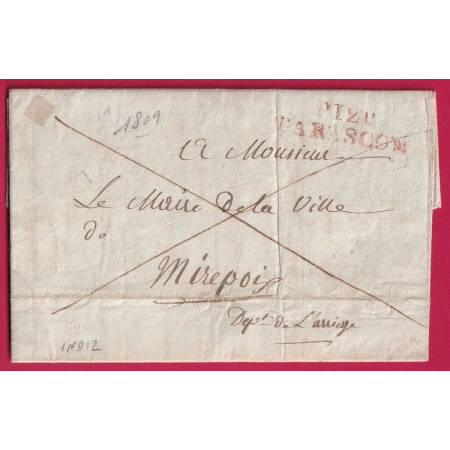 1809
P12P
TARASCON
A Monsieur
Le Maire de la Ville
de
Mirepoix
Dept de L'arriege
IND12